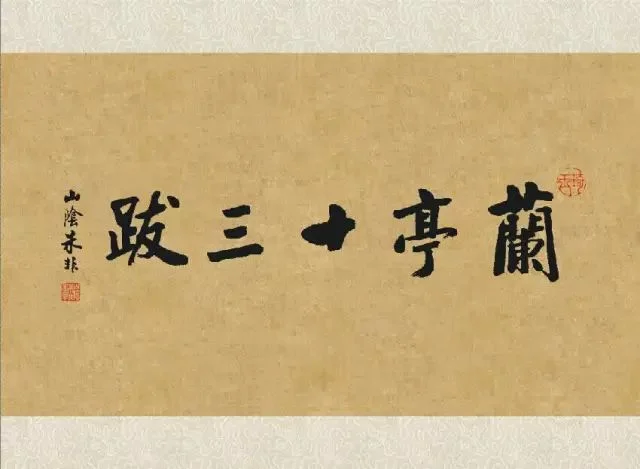 蘭亭十三跋
山陰朱非